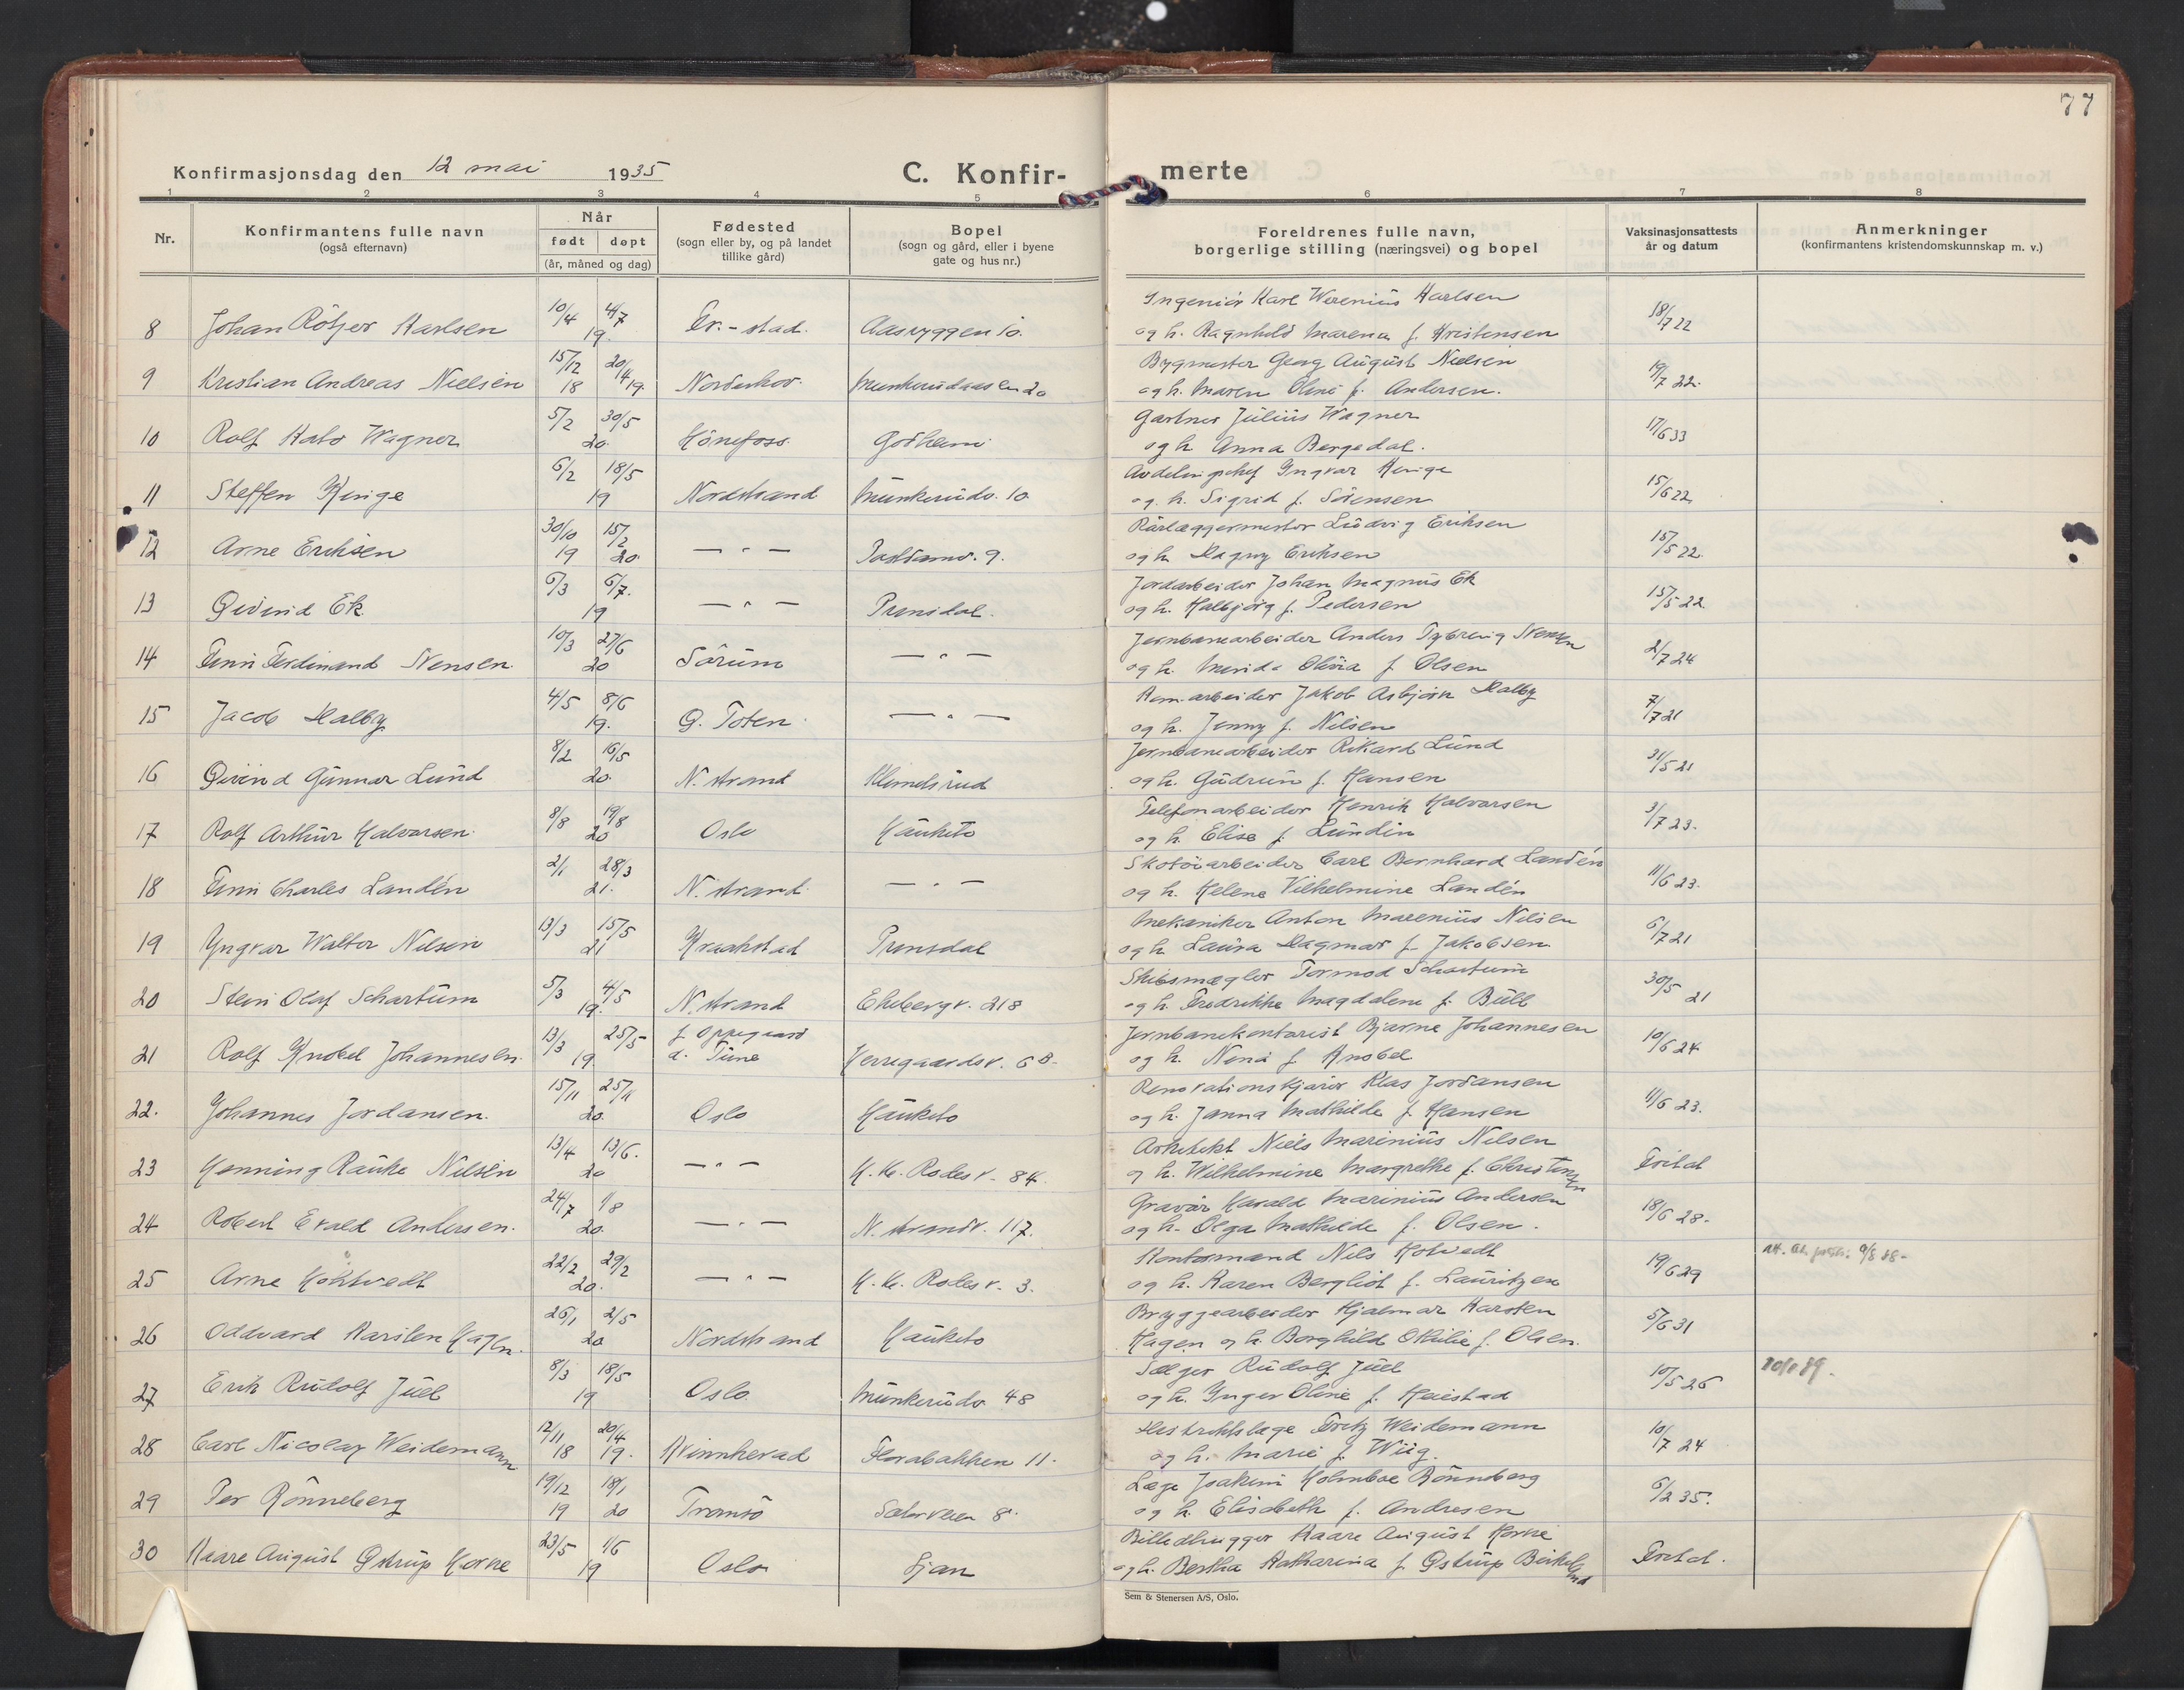 77
Konfirmasjonsdag den 12 mai 1935
C. Konfir-
merte
1 2 3 4 5 6 7 8
Nr.
Konfirmantens fulle navn
(også efternavn)
Når
født døpt
(år, måned og dag)
Fødested
(sogn eller by, og på landet
tillike gård)
Bopel
(sogn og gård, eller i byene
gate og hus nr.)
Foreldrenes fulle navn,
borgerlige stilling (næringsvei) og bopel
Vaksinasjonsattests
år og datum
Anmerkninger
(konfirmantens kristendomskunnskap m. v.)
10/4 4/7 Ingeniør Karl Werenius Karlsen
8 Johan Karlsen 19. Fr.-stad. Aasryggen 10. og h. Ragnhild Marena f. Kristensen 18/7 22
15/12 20/4 Bygmester Georg August Nielsen
9 Kristian Andreas Nielsen 18 19 Norderhov. Munkerudaasen 20 og h. Maren Oline f. Andersen. 19/7 22.
5/2 30/5 Gartner Julius Wagner
10 Rolf Kato Wagner 20. Hönefoss. Godheim og h. Anna Bergedal. 17/6 33
6/2 18/5 Avdelingschef Yngvar Kinge
11 Steffen Kinge 19 Nordstrand Munkerudv. 10 og. h. Sigrid f. Sörensen 15/6 22
30/10 15/2 Rörlæggermester Ludvig Eriksen
12 Arne Eriksen 19 20. — " — 9. og h. Dagny Eriksen 15/5 22.
6/3 6/7. Jordarbeider Johan Magnus Ek
13 Øivind Ek 19 — " — Prinsdal. og h. Halbjörg f. Pedersen 15/5 22.
10/3 27/6 Jernbanearbeider Anders
14 Finn Ferdinand 20 Sörum — " — og h. Olivia f. Olsen 2/7 24
4/5 8/6 Kom.arbeider Jakob Asbjörn Dalby
15 Jacob Dalby 19. Ø. Toten. — " — og h. Jenny f. Nilsen 7/7 21
8/2 16/5 Jernbanearbeider Rikard Lund
16 Øivind Gunnar Lund 20. N. strand Klemetsrud og h. Gudrun f. Hansen 31/5 21
8/8 19/8 Telefonarbeider Henrik Halvorsen
17 Rolf Arthur Halvorsen. 20 Oslo Hauketo og h. Elise f. Lundin 3/7 23.
2/1 28/3 Skotöiarbeider Carl Bernhard Landén
18 Finn Charles Landén 21. N. strand — " — og h. Helene Vilhelmine Landén 11/6 23.
13/3 15/5 Mekaniker Anton Marenius Nilsen
19 Yngvar Walter Nilsen 21 Kraakstad Prinsdal og h. Laura Dagmar f. Jakobsen 6/7 21
5/3 4/5 Skibsmægler Tormod Schartum
20 Stein Olaf Schartum 19. N. strand Ekebergv. 218 og h. Fredrikke Magdalene f. Bull 30/5 21
13/3 25/5 f. Oppegaard Jernbanekontorist Bjarne Johannesen
21 Rolf Knobel Johannesen. 19. d. Tune Herregaardsv. 6 og h. f. Knobel 10/6 24
15/11 25/11 Renovationskjører Klas Jordansen
22. Johannes Jordansen. 20. Oslo Hauketo og h. Janna Mathilde f. Hansen 11/6 23.
13/4 13/6. Arkitekt Niels Marinius Nilsen
23 Henning Rauke Nilsen 20 — " — H. H. Rolesv. 84. og h. Wilhelmine Margrethe f. Christensen Fritat
24/7 1/8 Gravør Harald Marinius Andersen
24 Robert Evald Andersen. 20. — " — N. strandv. 117. og h. Olga Mathilde f. Olsen. 18/6 28.
22/2 29/2 Kontormand Nils
25 Arne 20. — " — H. H. Rolesv. 3. og h. Karen Bergliot f. Lauritzen 19/6 29
26/1 2/5 Bryggearbeider Hjalmar Karsten
26 Oddvard Karsten Hagen. 20 Nordstrand Hauketo Hagen og h. Borghild Othilie f. Olsen. 5/6 31
8/3 18/5 Sælger Rudolf Juel
27 Erik Rudolf Juel 19 Oslo. Munkerudv. 48 og h. Inger Oline f. Heiestad 10/5 26
12/11 20/4 Distriktslæge Fritz Weidemann
28 Carl Nicolay Weidemann 18 19. Kvinnherad Florabakken 11. og h. Marie f. Wiig. 10/7 24
19/12 18/1 Læge Joakim Holmboe Rönneberg
29 Per Rönneberg 19 20 Tromsö Sæterveien 8. og h. Elisabeth f. Andresen 6/2 35.
23/5 1/6 Billedhugger Kaare August
30 Kaare August Østrup 19 Oslo Ljan og h. Bertha Katharina f. Østrup Birkelund Fritat.
Sem & Stenersen A/S, Oslo.